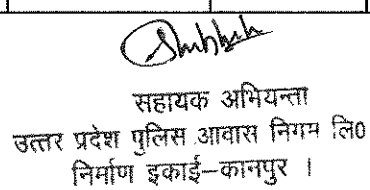 सहायक अभियन्ता
उत्तर प्रदेश पुलिस आवास निगम लि0
निर्माण इकाई–कानपुर ।